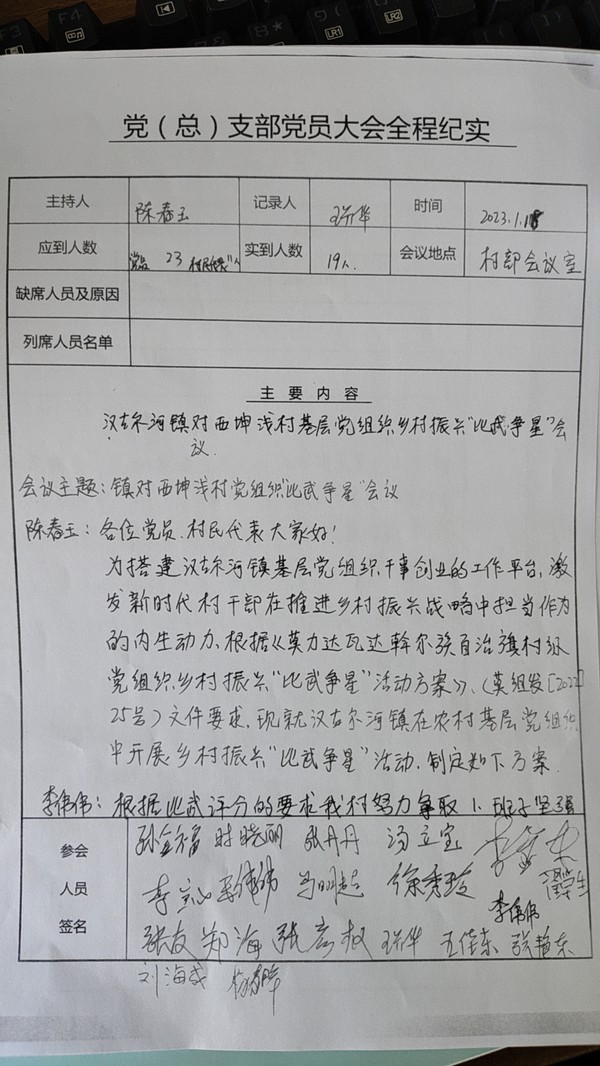 F3
F4
LR1
LR2
党（总）支部党员大会全程纪实
主持人 陈春玉 记录人 时间 2023.1.18
应到人数 党员 23 村民代表 人 实到人数 19人. 会议地点 村部会议室
缺席人员及原因
列席人员名单
主 要 内 容
汉古尔河镇对西坤浅村基层党组织乡村振兴"比武争星"会
议.
会议主题：镇对西坤浅村党组织"比武争星"会议
陈春玉：各位党员.村民代表大家好！
为搭建汉古尔河镇基层党组织干事创业的工作平台,激
发新时代村干部在推进乡村振兴战略中担当作为
的内生动力.根据《莫力达瓦达斡尔族自治旗村级
党组织乡村振兴"比武争星"活动方案》、(莫组发[2022]
25号)文件要求.现就汉古尔河镇在农村基层党组织
中开展乡村振兴"比武争星"活动.制定如下方案.
李伟伟：根据比武评分的要求我村努力争取 1.班子坚强
参会
人员
签名
孙金福 时晓丽 张丹丹 冯立宝
徐秀玲
李伟伟
张友 郑海 张彦权 王佳东 张艳东
刘海成